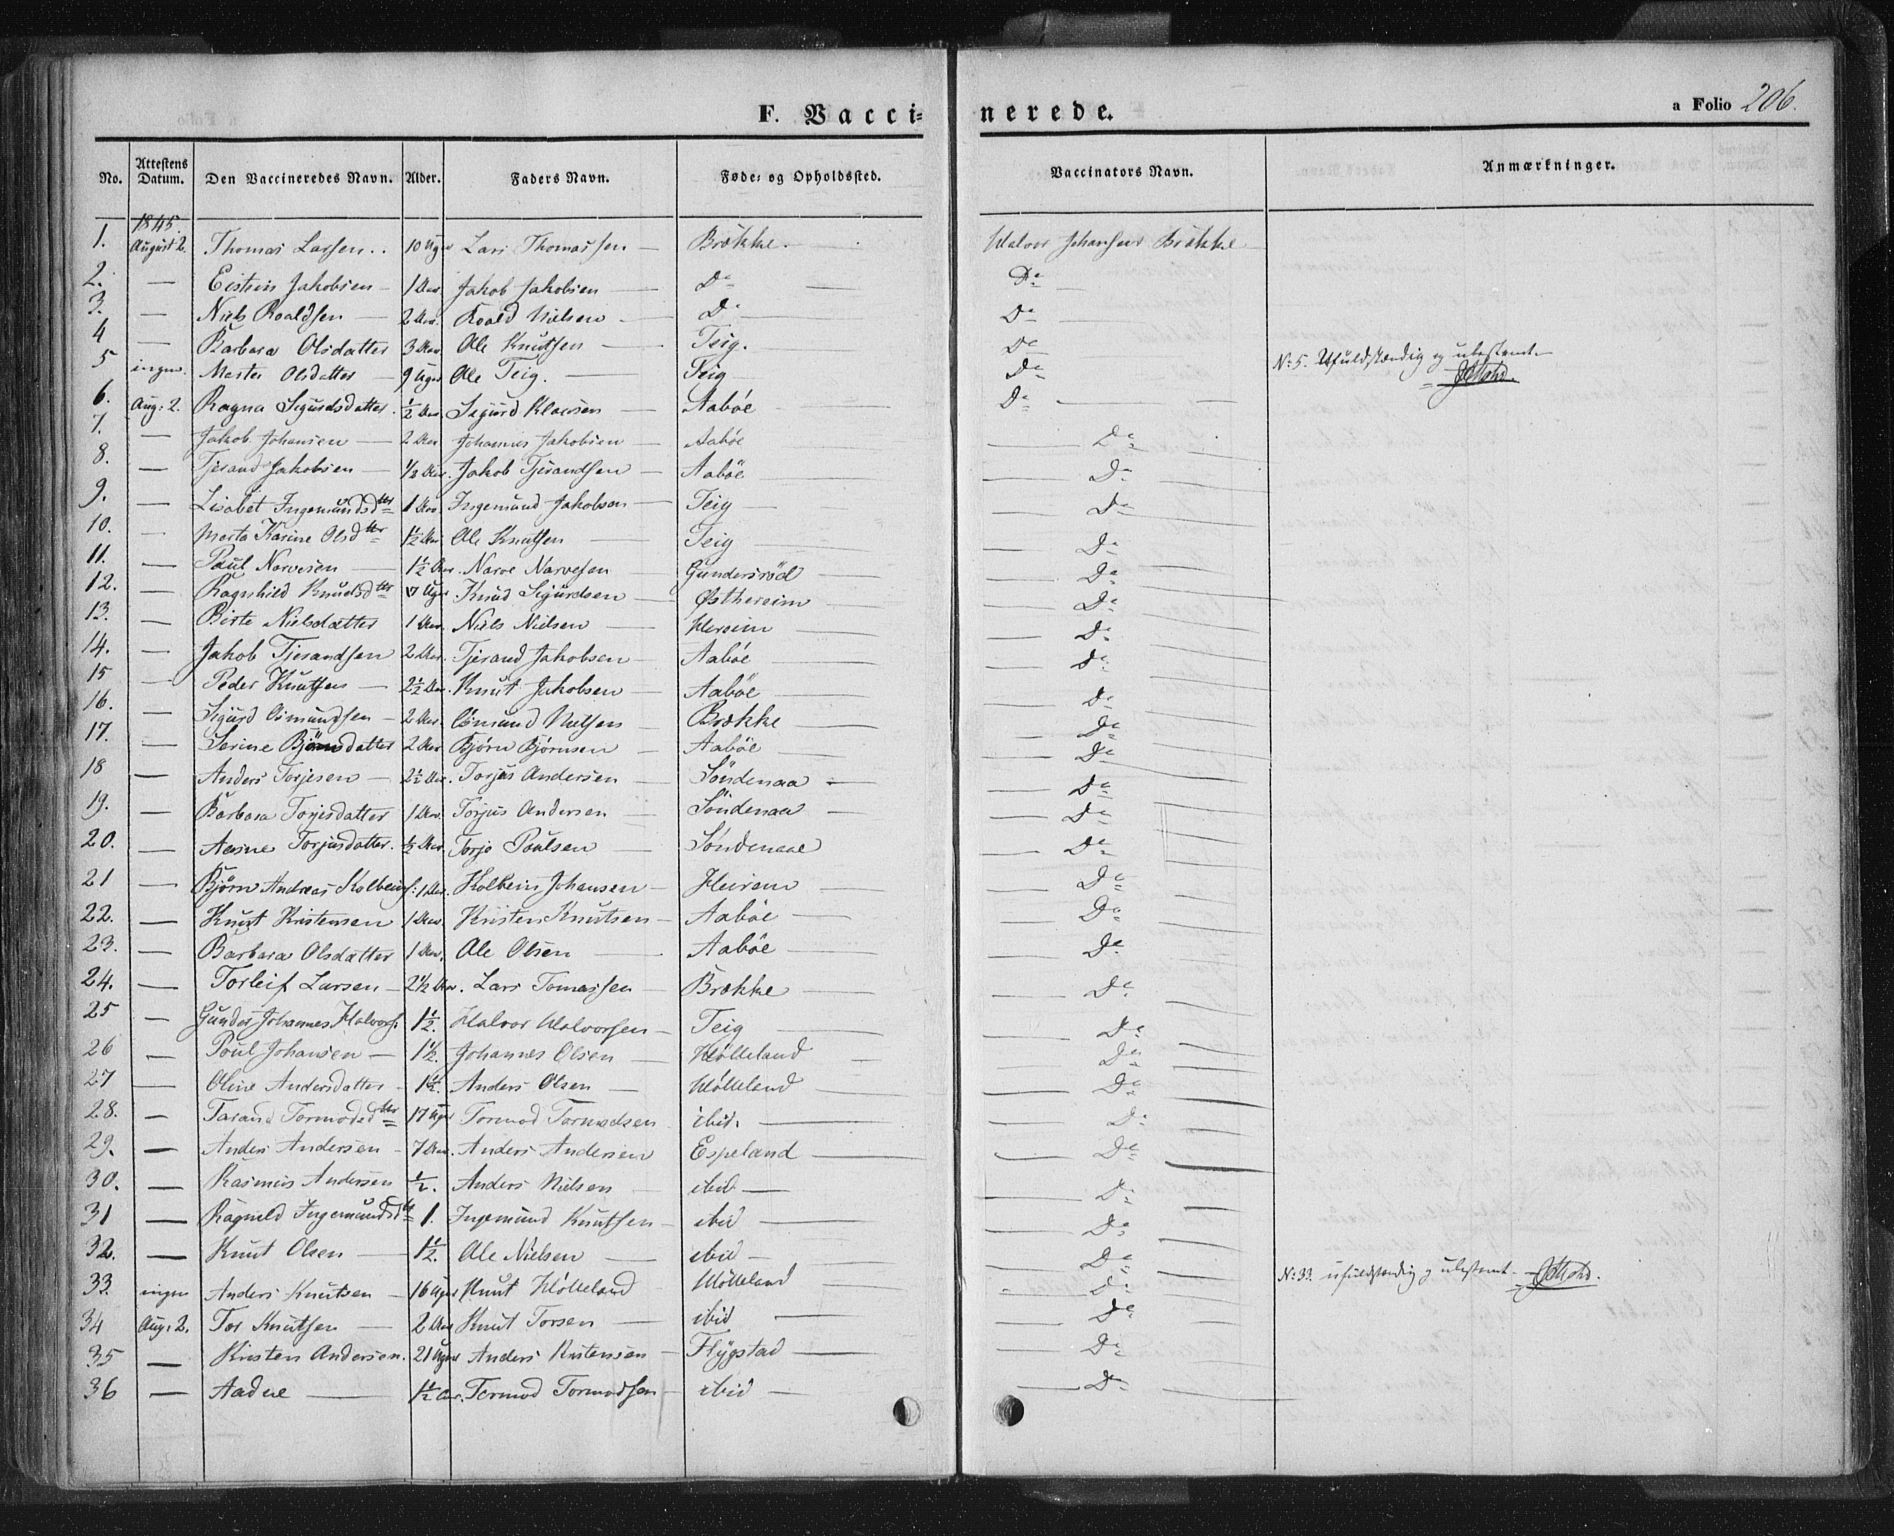 F. Vaccinerede.
a Folio 206.
No. Attestens Datum. Den Vaccineredes Navn. Alder. Faders Navn. Føde- og Opholdssted. Vaccinators Navn. Anmærkninger.
1845
1. August 2. Thomas Larsen 10 Uger Lars Thomassen Brøkke. Halvor Johansen Brøkke
2. — Eistein Jakobsen 1 Aar Jakob Jakobsen Do Do
3. — Niels Roaldsen 2 Aar. Roald Nielsen Do Do
4 — Barbara Olsdatter 3 Aar Ole Knutsen Teig. Do
5 ingen. Marte Olsdatter 9 Uger Ole Teig. Teig Do No 5. Ufuldstændig og ubestemt.
6. Aug: 2. Ragna Sigurdsdatter ½ Aar Sigurd Aabøe Do
7. — Jakob Johansen 2 Aar Johannes Jakobsen Aabøe Do
8. — Tjerand Jakobsen ½ Aar. Jakob Tjerandsen Aabøe Do
9. — Lisabet Ingemundsdtter 1 Aar Ingemund Jakobsen Teig Do
10. — Marta Karine Olsdtter 1½ Aar Ole Knutsen Teig Do
11. — Paul Narvesen 1½ Aar. Narve Narvesen Gundersrød Do
12. — Ragnhild Knudsdtter Uger Knud Sigurdsen Østhereim Do
13. — Birte Nielsdatter 1 Aar. Niels Nielsen Hereim Do
14. — Jakob Tjerandsen 2 Aar. Tjerand Jakobsen Aabøe Do
15 — Peder Knutsen 2½ Aar. Knut Jakobsen Aabøe Do
16. — Sigurd Osmundsen 2 Aar. Osmund Nielsen Brøkke Do
17. — Serine Bjørnsdatter 2 Aar Bjørn Bjørnsen Aabøe Do
18 — Anders Torjesen 2½ Aar. Torjus Andersen Søndenaa Do
19. — Barbara Torjesdatter 1 Aar. Torjus Andersen Søndenaa Do
20. — Aasne Torjusdatter. ½ Aar. Torjo Poulsen Søndenaae Do
21 — Bjørn Andreas Kolbeins: 1 Aar. Kolbein Johansen Heirem Do
22. — Knut Kristensen 1 Aar. Kristen Knutsen Aabøe Do
23. — Barbara Olsdatter 1 Aar. Ole Olsen Aabøe Do
24. — Torleif Larsen 2½ Aar. Lars Tomassen Brøkke Do
25 — Gunder Johannes Halvors. 1½. Halvor Halvorsen Teig Do
26 — Poul Johansen 1½. Johannes Olsen Hølleland Do
27 — Oline Andersdatter 1½. Anders Olsen Hølleland Do
28. — Taran Tormodsdtter 17 Uger Tormod Tormodsen ibid. Do
29. — Anders Andersen 7 Aar. Anders Andersen Espeland Do
30. — Rasmus Andersen ½. Anders Nielsen ibid Do
31 — Ragnild Ingemundsdtt 1. Ingemund Knutsen ibid Do
32. — Knut Olsen 1½. Ole Nielsen ibid Do
33. ingen Anders Knutsen 16 Uger Knut Hølleland Hølleland Do No 33. ufuldstændig og ubestemt.
34 Aug: 2. Tor Knutsen 2 Aar Knut Torsen ibid Do
35 — Kristen Andersen. 21 Uger Anders Kristensen Flygstad Do
36 — Aadne 1½ Aar. Tormod Tormodsen ibid Do